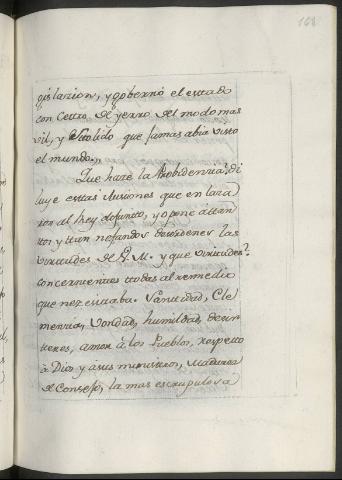 168
gislazion, y gobernó el estado
con Cetro de yerro del modo mas
vil, y estolido que jamas abia visto
el mundo.
Que haze la Probidenzia? Di
luye estas Ilusiones que en la ra
zon al Rey defunto, y opone a tan
tos y tan nefandos desordenes las
virtudes de V. M. y que virtudes?
concernientes todas al remedio
que nezesitaba. Santidad, Cle
menzia, vondad, humildad, decin
teres, amor à los Pueblos, respeto
à Dios y a sus ministros, madurez
de Consejo, la mas escrupulosa